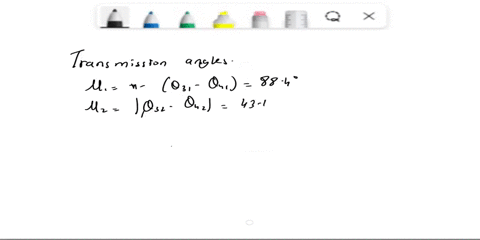 Transmission angles.
μ₁ = π - (θ₃₁ - θ₄₁) = 88.4°
μ₂ = |θ₃₂ - θ₄₂| = 43.1